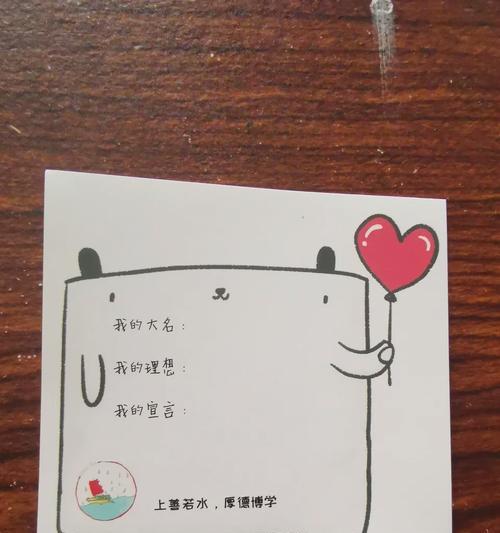 我的大名：
我的理想：
我的宣言：
上善若水，厚德博学